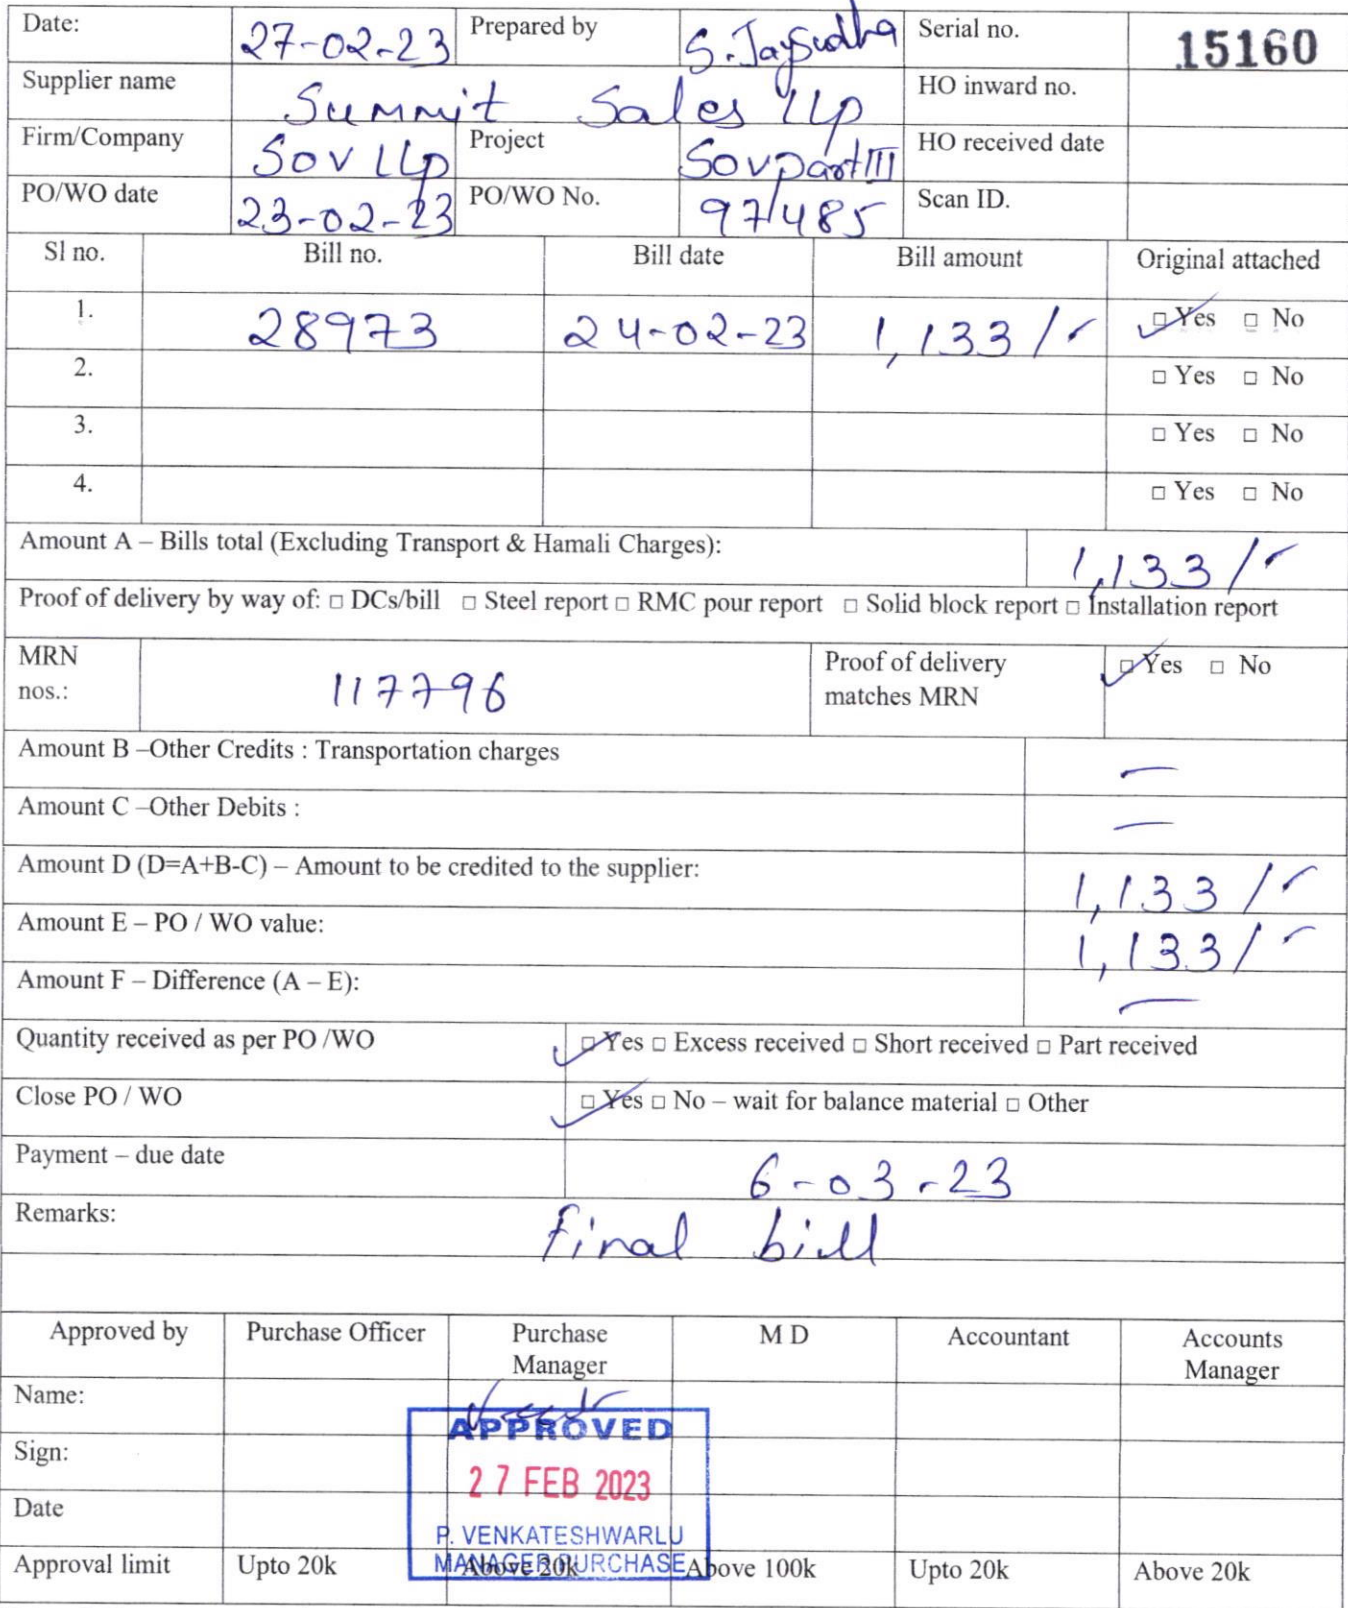 Date: 27-02-23 Prepared by S. Jaysudha Serial no. 15160
Supplier name Summit Sales LLP HO inward no.
Firm/Company SOV LLP Project Sov part III HO received date
PO/WO date 23-02-23 PO/WO No. 97485 Scan ID.
Sl no. Bill no. Bill date Bill amount Original attached
1. 28973 24-02-23 1,133/- □ Yes □ No
2. □ Yes □ No
3. □ Yes □ No
4. □ Yes □ No
Amount A – Bills total (Excluding Transport & Hamali Charges): 1,133/-
Proof of delivery by way of: □ DCs/bill □ Steel report □ RMC pour report □ Solid block report □ Installation report
MRN nos.: 117796 Proof of delivery matches MRN □ Yes □ No
Amount B –Other Credits : Transportation charges —
Amount C –Other Debits : —
Amount D (D=A+B-C) – Amount to be credited to the supplier: 1,133/-
Amount E – PO / WO value: 1,133/-
Amount F – Difference (A – E): —
Quantity received as per PO /WO □ Yes □ Excess received □ Short received □ Part received
Close PO / WO □ Yes □ No – wait for balance material □ Other
Payment – due date 6-03-23
Remarks: final bill
Approved by Purchase Officer Purchase Manager M D Accountant Accounts Manager
Name:
APPROVED
Sign:
27 FEB 2023
Date
P. VENKATESHWARLU
MANAGER PURCHASE
Approval limit Upto 20k Above 20k Above 100k Upto 20k Above 20k